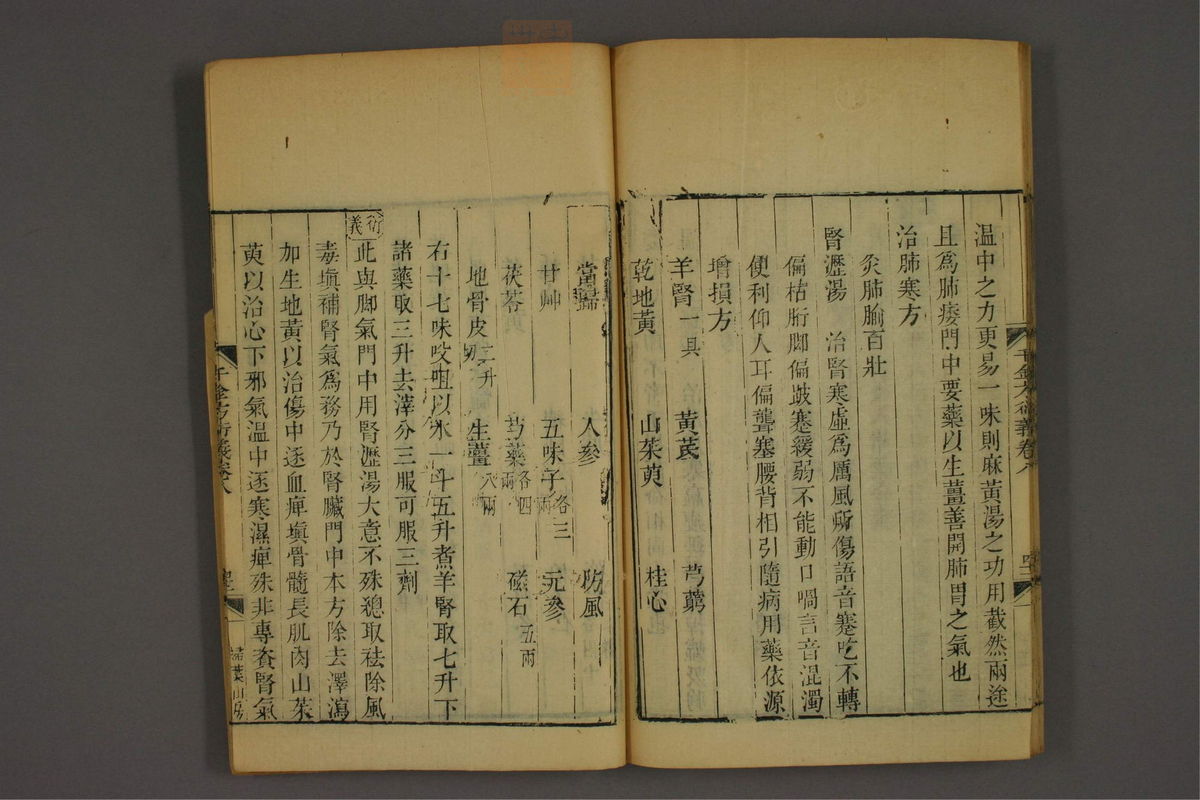 温中之力更易一味則麻黃湯之功用截然兩途
且爲肺痿門中要藥以生薑善開肺胃之氣也
治肺寒方
灸肺腧百壯
腎瀝湯 治腎寒虛爲厲風所傷語音蹇吃不轉
偏枯胻脚偏跛蹇緩弱不能動口喎言音混濁
便利仰人耳偏聾塞腰背相引隨病用藥依源
增損方
羊腎一具 黃芪 芎藭
乾地黃 山茱萸 桂心
千金方衍義卷八
當歸 人參 防風
甘艸 五味子各三兩 元參
茯苓 芍藥各四兩 磁石五兩
地骨皮二升切 生薑八兩
右十七味㕮咀以水一斗五升煮羊腎取七升下
諸藥取三升去滓分三服可服三劑
衍義
此與脚氣門中用腎瀝湯大意不殊緫取祛除風
毒塡補腎氣爲務乃於腎臟門中本方除去澤瀉
加生地黃以治傷中逐血痺塡骨髓長肌肉山茱
萸以治心下邪氣温中逐寒濕痺殊非專資腎氣
千金方衍義卷八
掃葉山房